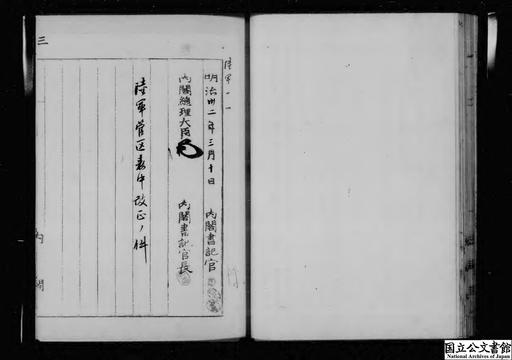 陸軍一一
明治卅二年三月十日
内閣書記官
内閣總理大臣
内閣書記官長
陸軍管区表中改正ノ件
三
内閣
国立公文書館
National Archives of Japan